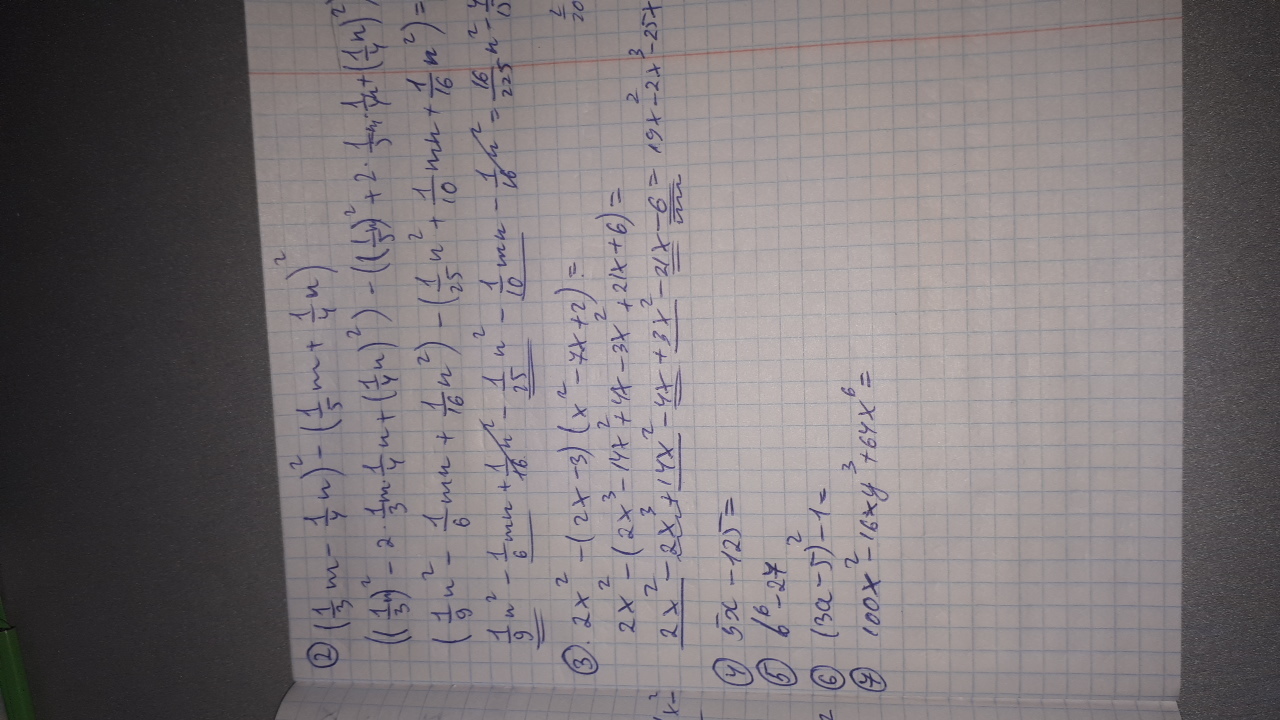 ② (1/3 m - 1/4 n)² - (1/5 m + 1/4 n)²
((1/3 m)² - 2 · 1/3 m · 1/4 n + (1/4 n)²) - ((1/5 m)² + 2 · 1/5 m · 1/4 n + (1/4 n)²)
(1/9 n² - 1/6 mn + 1/16 n²) - (1/25 n² + 1/10 mn + 1/16 n²) =
1/9 n² - 1/6 mn + 1/16 n² - 1/25 n² - 1/10 mn - 1/16 n² = 16/225 n² -
③. 2x² - (2x - 3)(x² - 7x + 2) =
2x² - (2x³ - 14x² + 4x - 3x² + 21x + 6) =
2x² - 2x³ + 14x² - 4x + 3x² - 21x - 6 = 19x² - 2x³ - 25x
④ 5x - 125 =
⑤ b⁶ - 27
⑥ (3a - 5)² - 1 =
⑦ 100x² - 16xy³ + 64x⁶ =